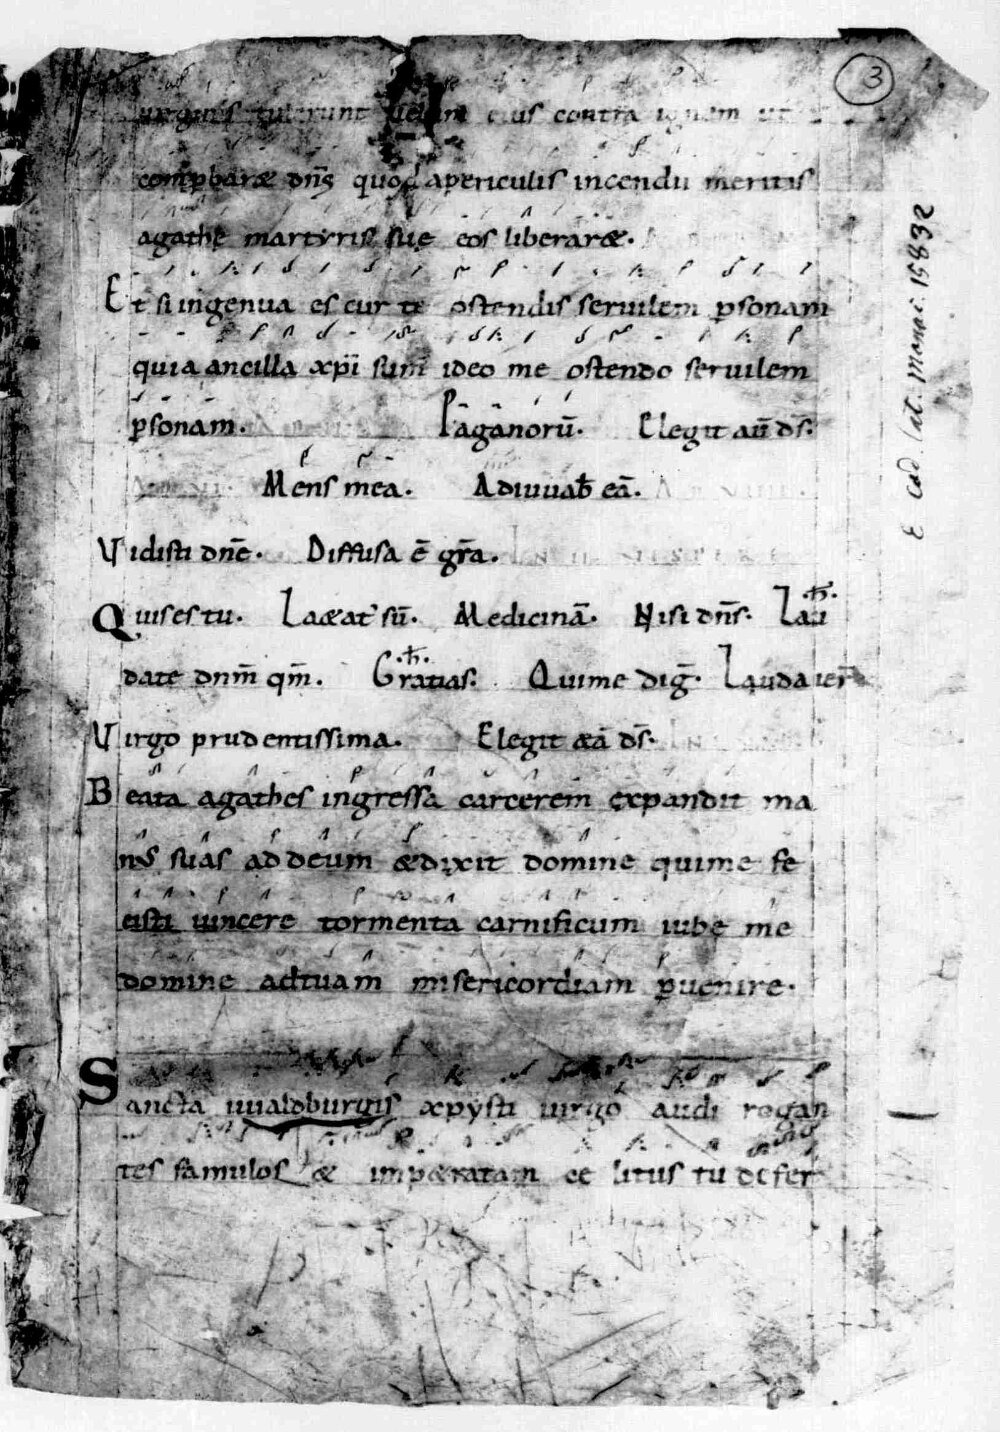 3
uirginis tulerunt uelum eius contra ignem ut
comp̱baræ dn̄s quod apericulis incendii meritis
agathę martyris suę eos liberaræ.
Et si ingenua es cur te ostendis seruilem p̱sonam
quia ancilla xp̄i sum ideo me ostendo seruilem
p̱sonam. Paganorū. Elegit aū ds̄.
Mens mea. Adiuuab̄ eā.
Vidisti dn̄e. Diffusa ē gr̄a.
Quis es tu. Laæat' sū. Medicinā. Nisi dn̄s. Lau
date dnm̄ qm̄. Gratias. Qui me dig̅. Lauda ier̄
Virgo prudentissima. Elegit eā ds̄.
Beata agathes ingressa carcerem expandit ma
n᷒ suas ad deum & dixit domine qui me fe
cisti uincere tormenta carnificum iube me
domine ad tuam misericordiam p̱uenire.
Sancta uualdburgis xp̄ysti uirgo audi rogan
tes famulos & impæratam ce litus tu defer
E cod. lat. monac. 15832